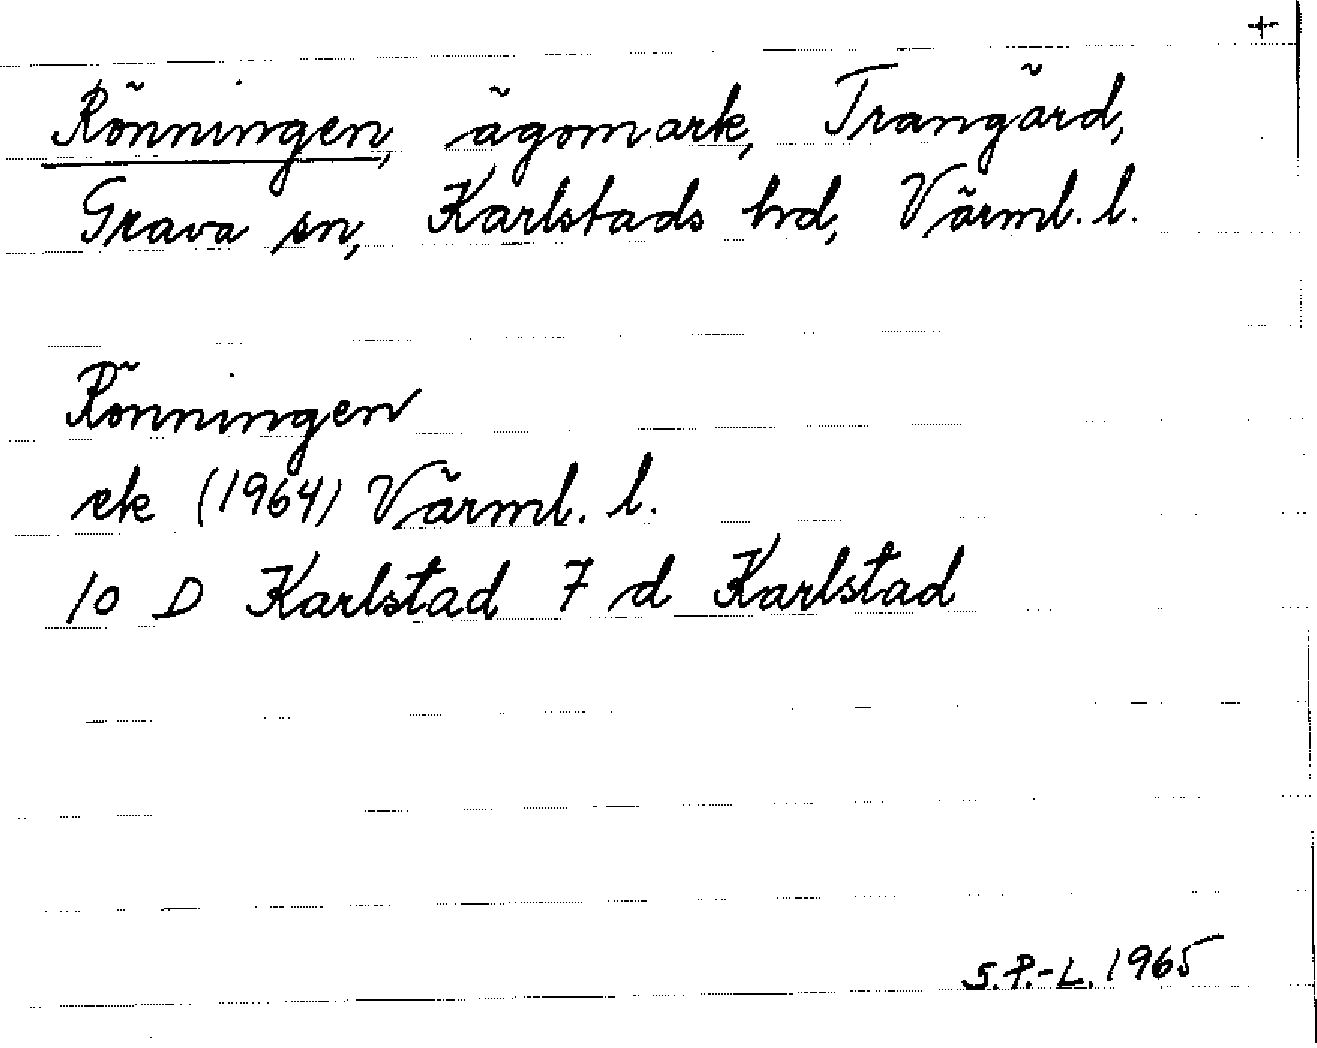 +
Rönningen, ägomark, Trangärd,
Grava sn, Karlstads hd, Värml. l.
Rönningen
ek (1964) Värml. l.
10 D Karlstad 7 d Karlstad
S.P.-L. 1965